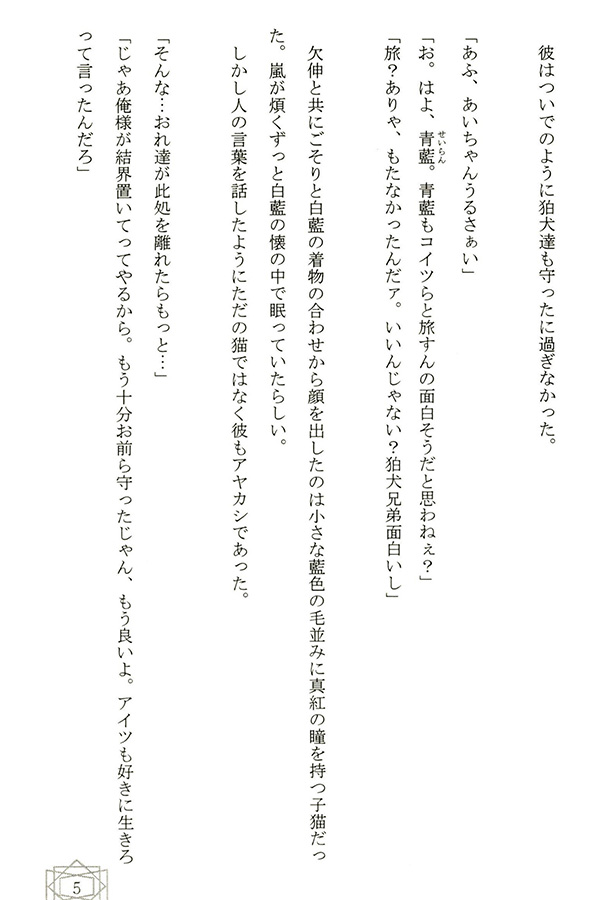 彼はついでのように狛犬達も守ったに過ぎなかった。
「あふ、あいちゃんうるさぁい」
「お。はよ、青藍。青藍もコイツらと旅すんの面白そうだと思わねぇ？」
せいらん
「旅？ありゃ、もたなかったんだァ。いいんじゃない？狛犬兄弟面白いし」
欠伸と共にごそりと白藍の着物の合わせから顔を出したのは小さな藍色の毛並みに真紅の瞳を持つ子猫だっ
た。嵐が煩くずっと白藍の懐の中で眠っていたらしい。
しかし人の言葉を話したようにただの猫ではなく彼もアヤカシであった。
「そんな…おれ達が此処を離れたらもっと…」
「じゃあ俺様が結界置いてってやるから。もう十分お前ら守ったじゃん、もう良いよ。アイツも好きに生きろ
って言ったんだろ」
5